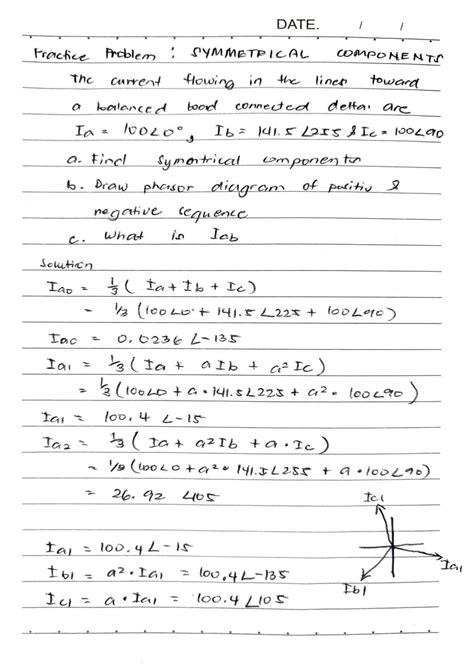 DATE. / /
Practice Problem : SYMMETRICAL COMPONENTS
The current flowing in the lines toward
a balanced load connected delta are
Ia = 100∠0°, Ib = 141.5∠255 & Ic = 100∠90
a. Find symmetrical components
b. Draw phasor diagram of positiv &
negative sequence
c. What is Iab
Solution
Iao = 1/3 ( Ia + Ib + Ic )
= 1/3 (100∠0 + 141.5∠225 + 100∠090)
Iao = 0.0236 ∠-135
Ia1 = 1/3 ( Ia + aIb + a² Ic )
= 1/3 (100∠0 + a • 141.5∠225 + a² • 100∠90)
Ia1 = 100.4 ∠-15
Ia2 = 1/3 ( Ia + a² Ib + a • Ic )
= 1/3 (100∠0 + a² • 141.5∠255 + a • 100∠90)
= 26.92 ∠105
Ic1
Ia1
Ib1
Ia1 = 100.4 ∠-15
Ib1 = a² • Ia1 = 100.4∠-135
Ic1 = a • Ia1 = 100.4 ∠105